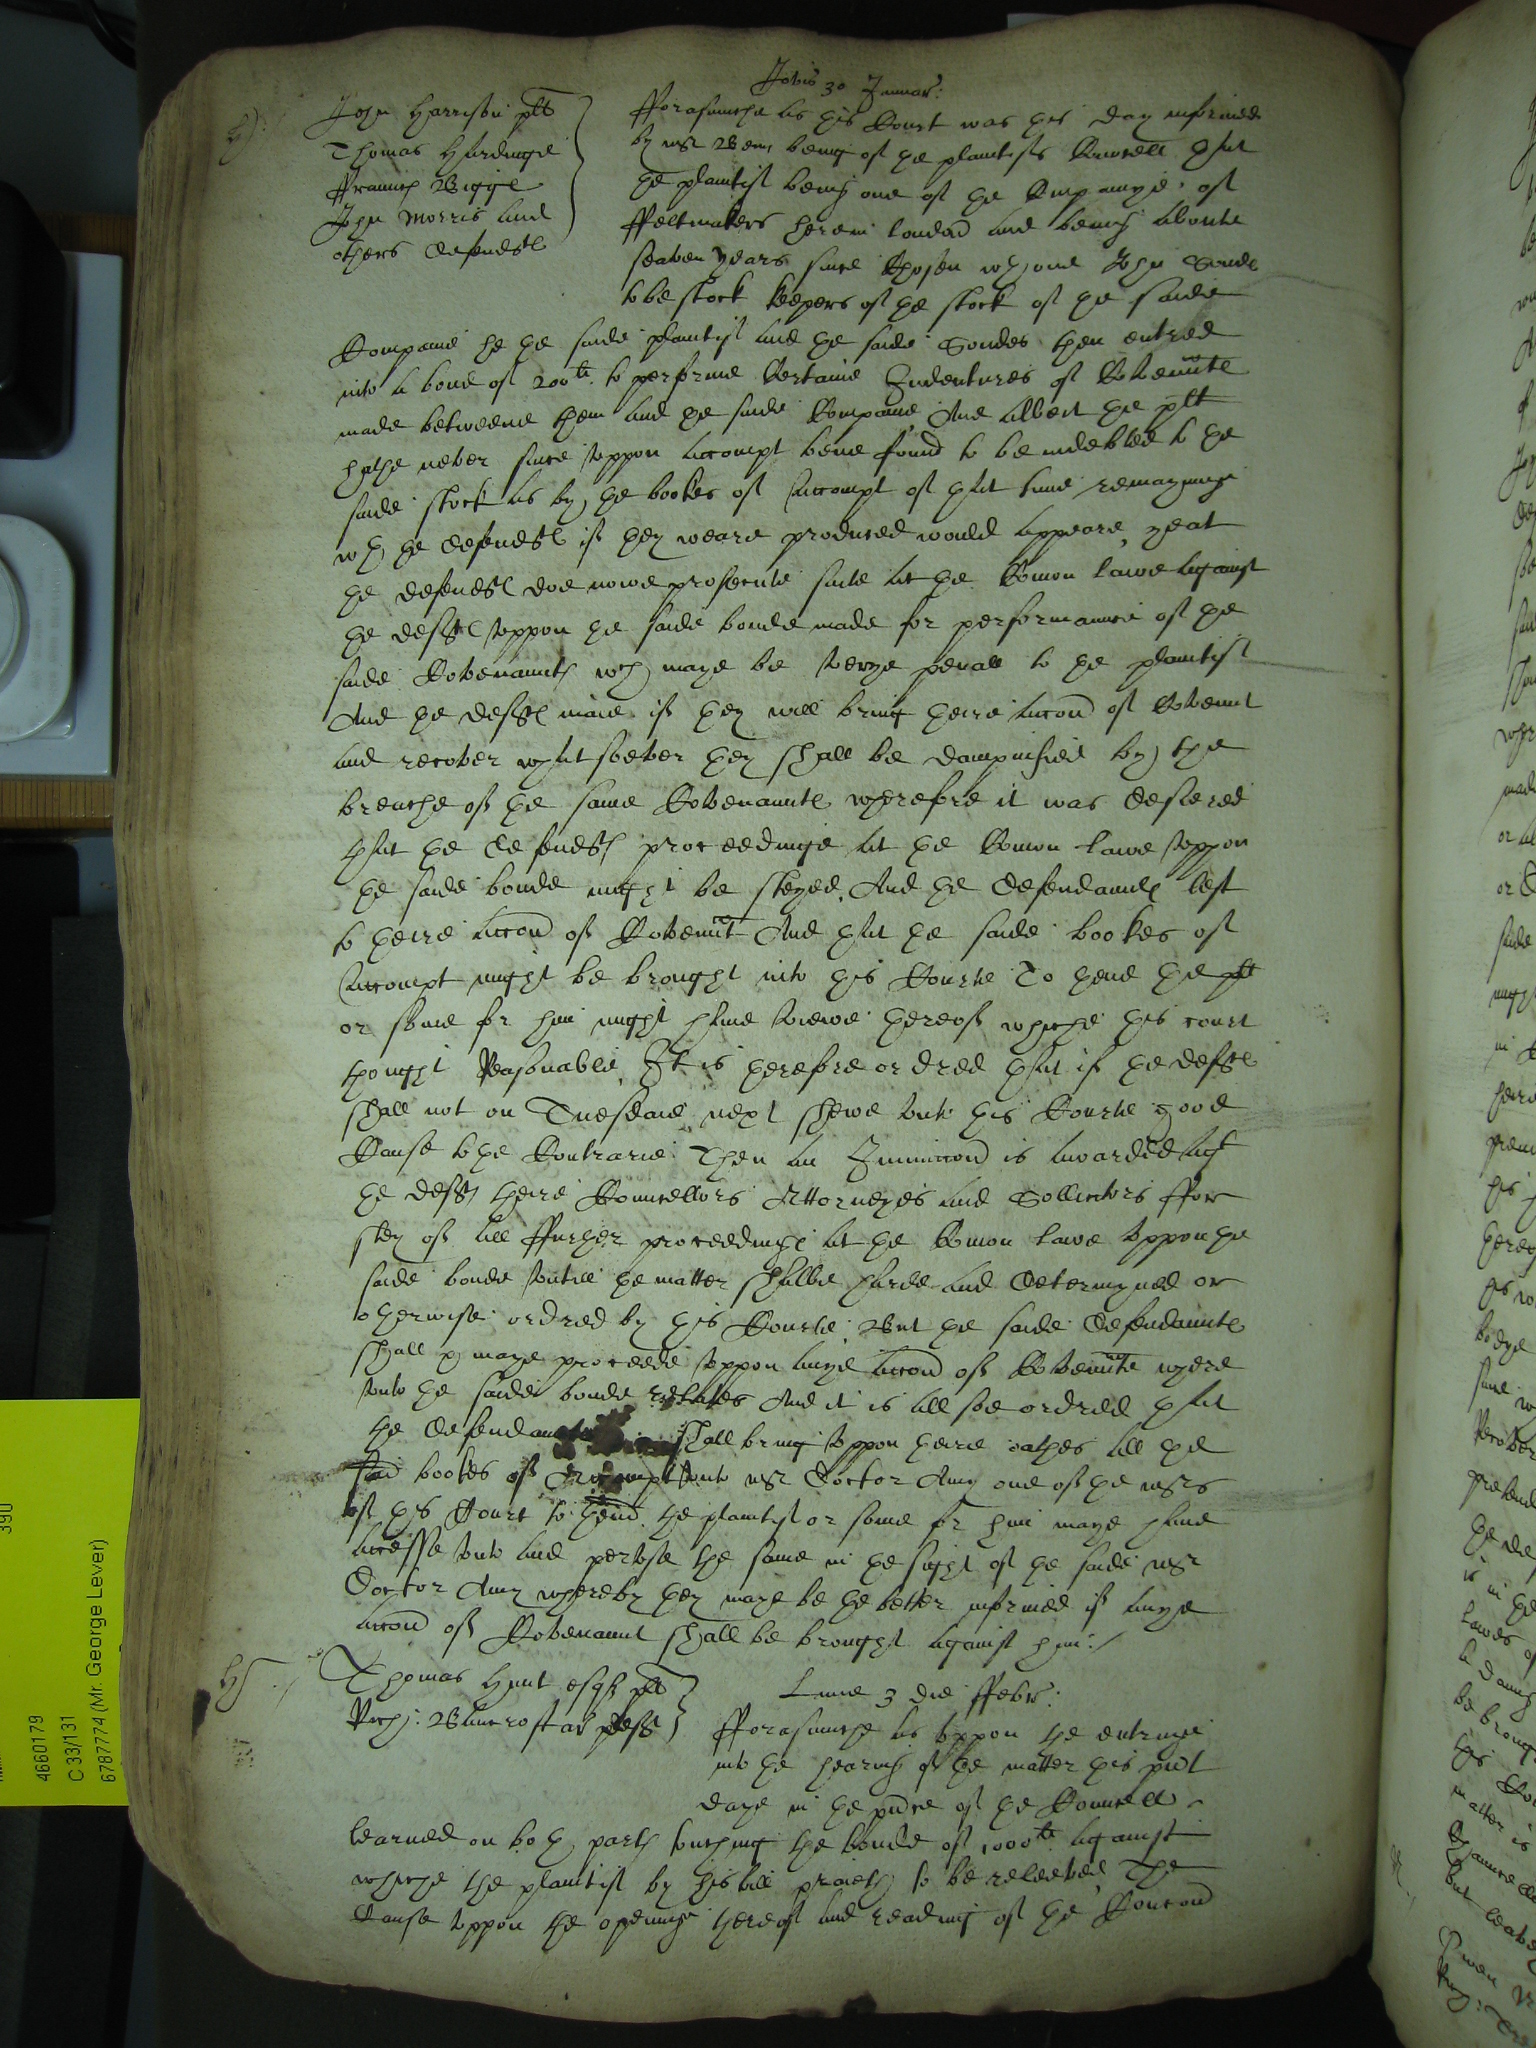 Jovis 30 Januar:
John Harrison plt
Thomas Hardinge
Frauncs Bigge
John Morris and
others defendts
Fforasmuche as this Court was this day informed
by mr Benn being of the plantifs Councell that
the plantif being one of the Companye of
Ffeltmakers here in london and being aboute
seaven years since chosen wth one John Sondes
to be stock keepers of the stock of the saide
Companie he the saide plantif and the saide Sondes then entred
into a bond of 200li to performe Certaine Indentures of Covennte
made betweene them and the saide Companie, And albeit the plt
hathe never since vppon accompt bene found to be indebted to the
saide stock as by the bookes of Accompt of that time remayninge
wth the defendts if they weare produced would appeare, yeat
the defendts doe nowe prosecute suite at the Comon lawe against
the defts vppon the saide bonde made for performannce of the
saide Covenaunts wch maye be verye penall to the plantif
And the defts maie if they will bring theire accon of Covennt
and recover whatsoever they shall be dampnified by the
breache of the same Covenaunts wherefore it was desiered
that the defendts proceedinge at the Comon lawe vppon
the saide bonde might be steyed, And the defendaunts left
to theire accon of Covennt And that the saide bookes of
Accompt might be brought into this Courte To thend the plt
or some for him might have viewe thereof whiche this court
thought Reasonable, It is therefore ordred that if the defts
shall not on Tuesdaie next shewe vnto this Courte good
Cause to the Contrarie Then an Iniunccon is awarded agt
the defts theire Councellors Attorneyes and Sollicitors ffor
stey of all ffurther proceedings at the Comon lawe vppon the
saide bonde vntill the matter shalbe harde and determyned or
otherwise ordred by this Courte, But the saide defendaunts
shall & maye proceede vppon anye accon of Covennte where
vnto the saide bonde relates And it is allsoe ordred that
the defendaunts shall bring vppon theire oathes all the
said bookes of Accompt vnto mr Doctor Amy one of the mrs
of this Court to thend the plantif or some for him maye have
accesse vnto and pervse the same in the sight of the saide mr
Doctor Amy whereby they maye be the better informed if anye
accon of Covenaunt shall be brought against him:/
Thomas Hunt esqr plt
Rich: Bancroft deft
Lune 3 die ffebr:
Fforasmuche as vppon the entringe
into the hearing of the matter this pnt
daye in the pnce of the Councell
learned on both parts touching the bonde of 1000li against
whiche the plantif by his bill praieth to be releeved, The
Cause vppon the openinge thereof and reading of the Condicon
4660179
C 33/131
6787774 (Mr. George Lever)
390